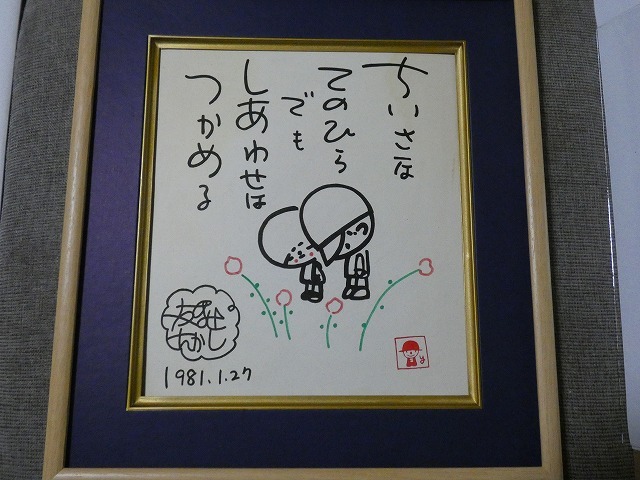 ちいさな
てのひら
でも
しあわせは
つかめる
1981.1.27